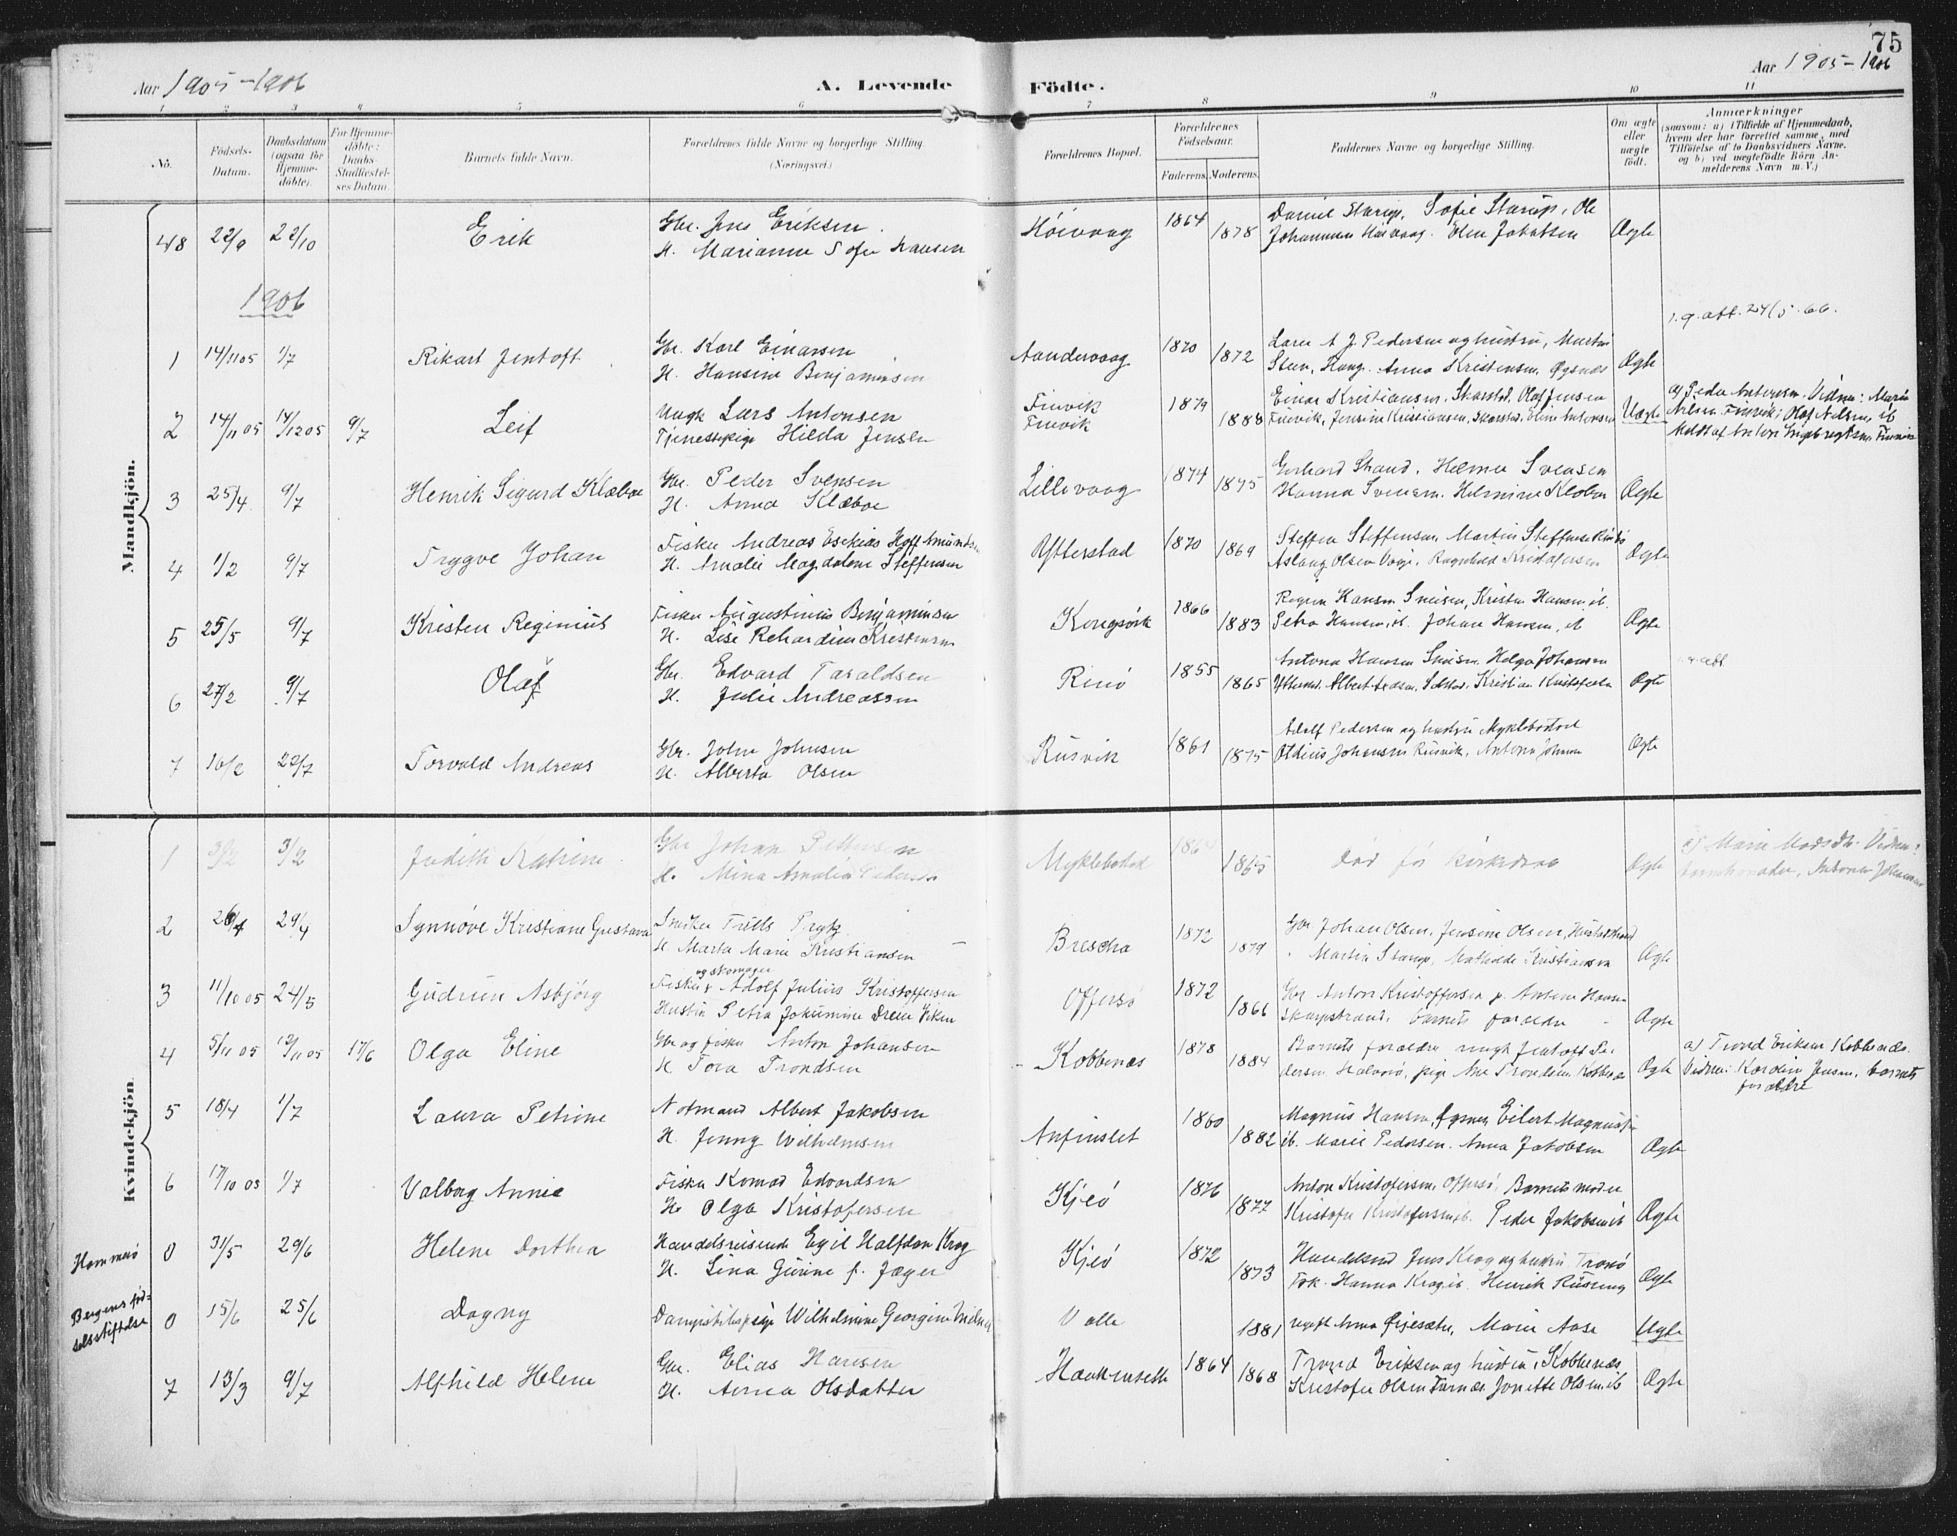 75
Aar 1905-1906
A. Levende Födte.
Aar 1905-1906
1 2 3 4 5 6 7 8 9 10 11
No. Födsels-Datum. Daabsdatum (ogsaa for Hjemmedöbte). For Hjemmedöbte: Daabs-Stadfæstelses Datum. Barnets fulde Navn. Forældrenes fulde Navne og borgerlige Stilling. (Næringsvei.) Forældrenes Bopæl. Forældrenes Födselsaar. Faderens. Moderens. Faddernes Navne og borgerlige Stilling. Om ægte eller uægte födt. Anmærkninger (saasom: a) i Tilfælde af Hjemmedaab, hvem der har forrettet samme, med Tilföielse af to Daabsvidners Navne, og b) ved uægtefödte Börn Anmelderens Navn m. V.)
Mandkjön.
48 22/9 22/10 Erik Gbr. Jens Eriksen Höivaag 1864 Daniel Starup, Sofie Starup, Ole
H. Marianne Sofie Hansen 1878 Johannesen Höivaag. Olea Jakobsen Ægte
1906
1.9.att. 24/5.66.
1 14/11 05 1/7 Rikart Jentoft Gbr. Karl Einarsen Aandervaag 1870 Lærer A J. Pedersen og hustru, Martin
H. Hansine Benjaminsen 1872 Steen, Haug. Anna Kristensen Ægte
2 14/11 05 14/12 05 9/7 Leif Ungk Lars Antonsen Finvik 1879 Einar Kristiansen, Skarstad, Olaf Jensen
Tjenestepige Hilda Jensen Finvik 1888 Finvik, Jensine Kristiansen, Skarstad, Eline Antonsen Uægte
a) Peder Antonsen. Vidner: Marie
Nilsen Finvik, Olaf Nilsen, ib
Meldt af Anton Ingebregtsen Finvik
3 25/4 9/7 Henrik Sigurd Klæboe Gbr. Peder Svensen Lillevaag 1874 Gerhard Strand. Helmer Svensen
H. Anna Klæboe 1875 Hanna Svensen. Helmine Kleboe Ægte
4 1/2 9/7 Trygve Johan Fisker Andreas Esekias Hoff Amundsen Ytterstad 1870 Steffen Steffensen, Martin Steffensen Rinö
H. Amalie Magdalene Steffensen 1869 Aslaug Olsen Vaage. Ragnhild Kristofersen Ægte
5 25/5 9/7 Kristen Reginius Fisker Augustinus Benjaminsen Kongsvik 1866 Hansen, Kristen Hansen, ib.
H. Lise Rikardine Kristensen 1883 Petra Hansen, ib. Johan Hansen, ib Ægte
6 27/2 9/7 Olaf Gbr. Edvard Taraldsen Rinö 1855 Antona Hansen Helga Johansen
H. Julie Andreassen 1865 Ytterstad. Albert Kristian Kristofersen Ægte
7 16/2 22/7 Torvald Andreas Gbr. John Johnsen Rusvik 1861 Adolf Pedersen og hustru Myklebostad
H. Alberta Olsen 1875 Oldine Johansen Rusvik, Antona Johnsen Ægte
Kvindekjön.
1 3/2 3/2 Judith Katrine Gbr Johan Pettersen Myklebostad 1864 Död för kirkedaab
H. Mina Amalia Pedersen 1865 Ægte
a) Marie Madsdtr. Vidner:
barnets moder, Antona Johansen
2 26/4 29/4 Synnöve Kristiane Gustava Snedker Trills Prytz Brescha 1872 Gbr Johan Olsen, Jensine Olsen,
H Marta Marie Kristiansen 1879 Martin Starup, Mathilde Kristiansen Ægte
3 11/10 05 24/5 Gudrun Asbjörg Fisker og skomager Adolf Julius Kristoffersen Offersö 1872 Gbr Anton Kristoffersen Antona Hansen
Hustru Petra Jokumine 1866 Skarpstrand, barnets forældre Ægte
4 5/11 05 12/11 05 17/6 Olga Eline Gbr og fisker Anton Johansen Kobbenæs 1878 Barnets forældre ungk Jentoft Pe-
H Tora Trondsen 1884 dersen Halsvö, pige Ane Trondsen Kobbenæs Ægte
a) Trond Eriksen Kobbenæs.
Vidner: Karolin Jensen, barnets
forældre
5 18/4 1/7 Laura Petrine Notmand Albert Jakobsen Anfinslet 1860 Magnus Hansen, Eilert Magnussen
H. Jenny Wilhelmsen 1882 ib. Marie Pedersen. Anna Jakobsen Ægte
6 17/10 03 1/7 Valborg Annie Fisker Konrad Edvardsen Kjeö 1876 Anton Kristofersen, Offersö, Barnets moder
H. Olga Kristofersen 1877 Kristofer Kristofersen ib. Peder Jakobsen ib Ægte
Hammerö 0 31/5 29/6 Helene Dorthea Handelsreisende Egil Halfdan Krog Kjeö 1872 Handelsmd Jens Krog og hustru Tranö
H. Lina Gurine f. Jæger 1873 Frk. Hanna Krog ib. Henrik Ægte
Bergens föd-
selsstiftelse 0 15/6 25/6 Dagny Dampskibspige Wilhelmine Georgine Valle 1881 ugift Anna Marie Aase Uægte
7 13/3 9/7 Alfhild Helene Gbr. Elias Hansen 1864 Trond Eriksen og hustru, Kobbenæs
H. Anna Olsdatter 1868 Kristofer Olsen Jonette Olsen ib Ægte